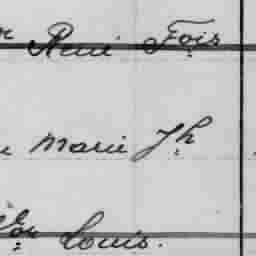 René Fois
Marie Jh
Louis.